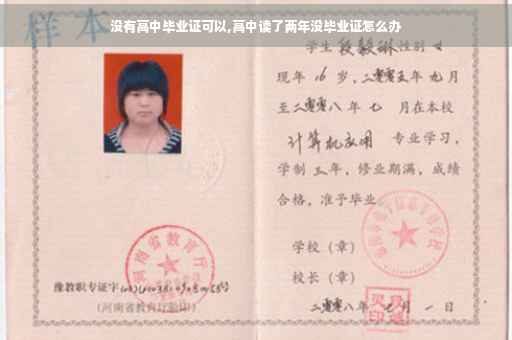 没有高中毕业证可以,高中读了两年没毕业证怎么办
样本
学生段毅琳性别女
现年16岁,二零零五年九月
至二零零八年七 月在本校
计算机应用 专业学习,
学制三年,修业期满,成绩
合格,准予毕业
学校(章)
校长(章)
河南省教育厅
豫教职专证字
(河南省教育厅验印)
二零零八年七月一日